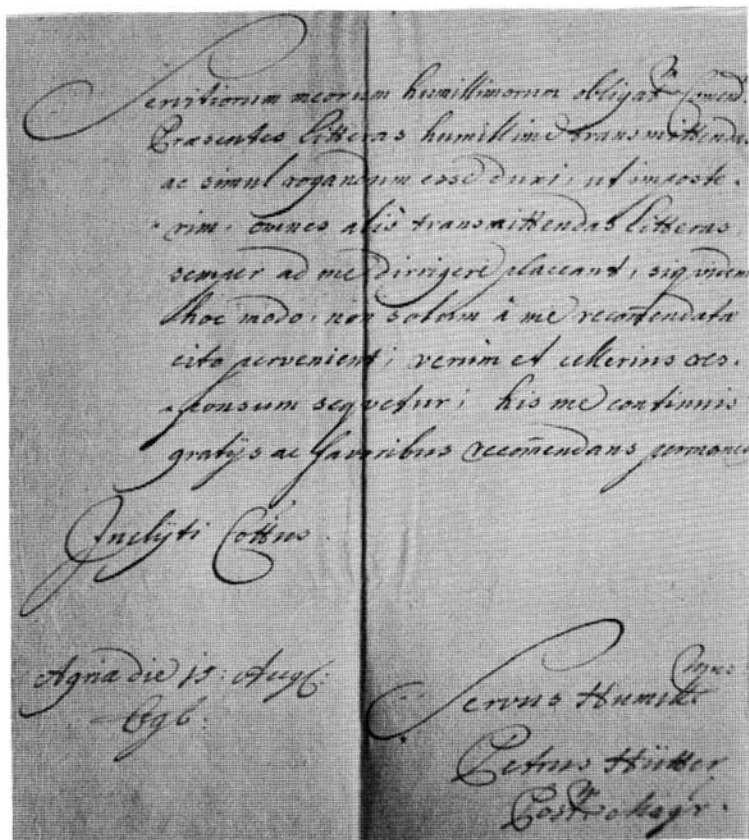 Servitiorum meorum humillimorum obligatm Comend.
Præsentes litteras humillime transmittendas
ac simul rogandum esse duxi, ut imposte-
rim, omnes alis transmittendas litteras
semper ad me dirrigere placeant, siquidem
hoc modo, non solum à me recomendata
cito pervenient; verum et cellerius res-
ponsum sequetur; his me continuis
gratijs ac favoribus recomendans permaneo
Inclyti Cottus.
Agriæ die 15: Aug:
Servus Humill mus
Petrus Hütter
Post Magr.